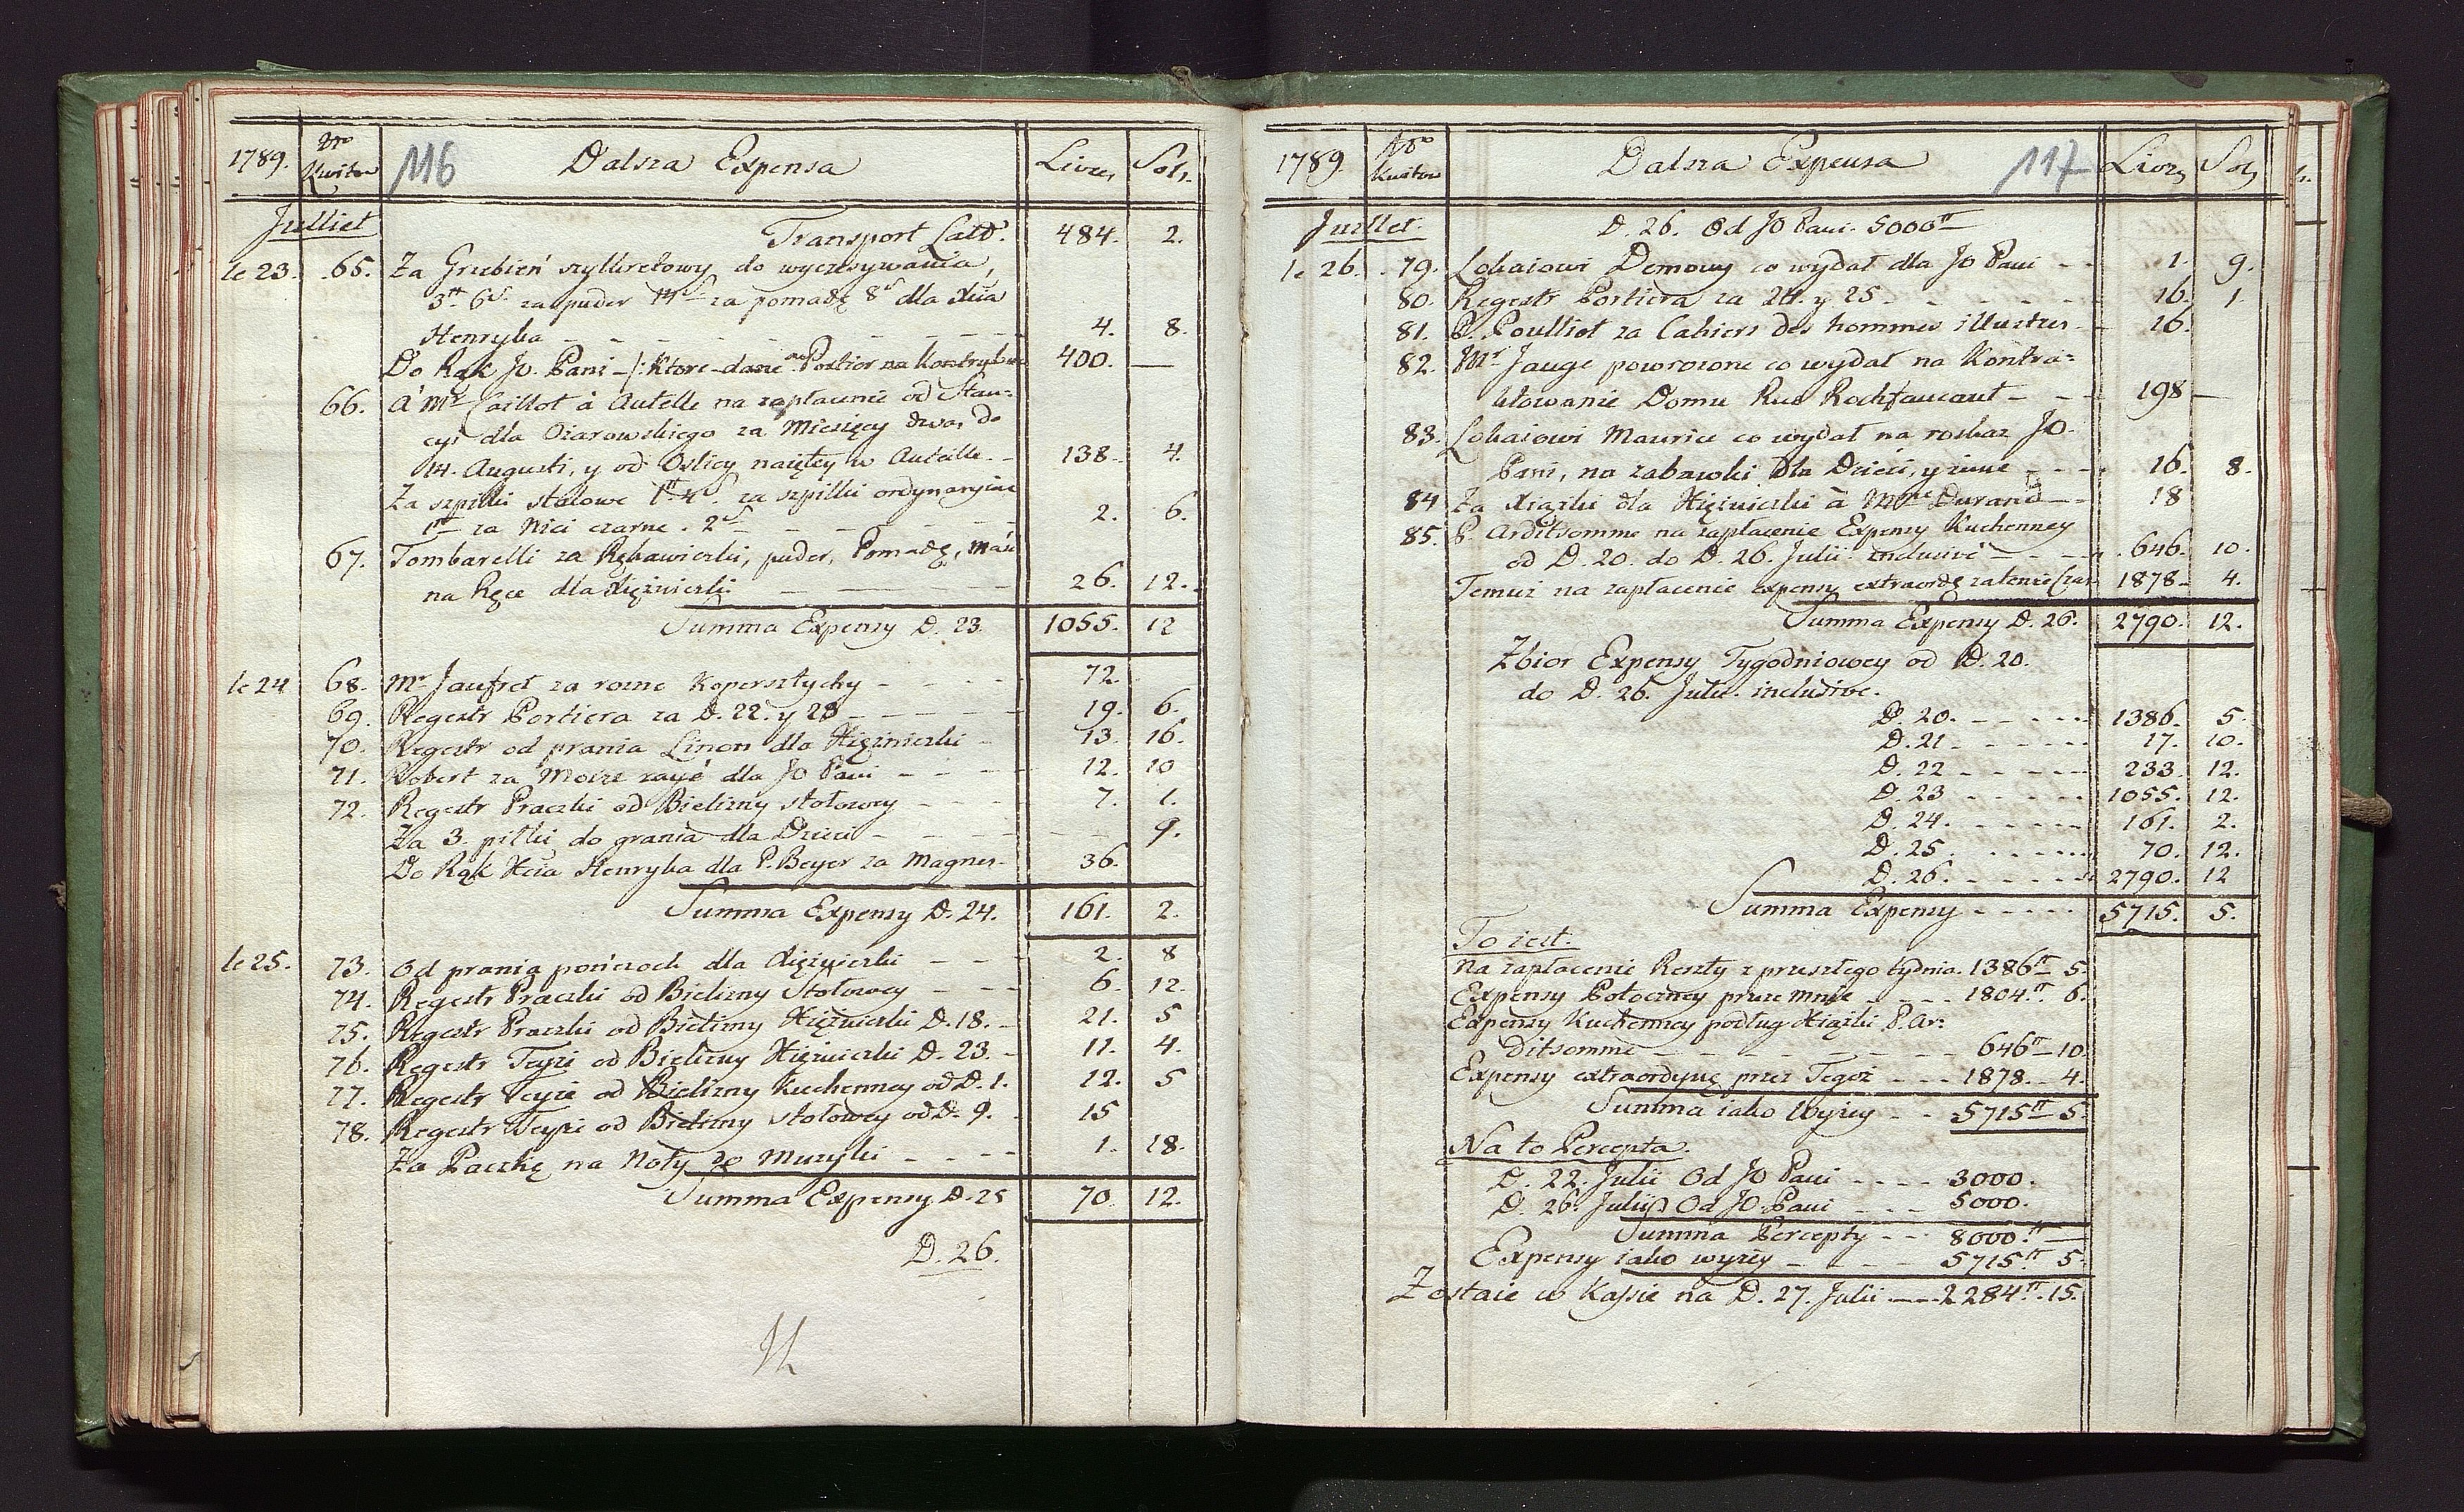 1789. Nro Kwitow 116 Dalsza Expensa Livres Sols.
Julliet Transport Lattd. 484. 2.
le 23. 65. Za Grzebień szylkretowy do wyczesywania,
3tt 6s za puder 14s za pomadę 8s dla Xcia
Henryka - - - 4. 8.
Do Rąk Jo. Pani - /: Ktore dane Portier na 400. —
66. à Mr Caillot à Autelle na zapłacenie od Stan=
cyi dla Ożarowskiego za Miesięcy dwa, do
14. Augusti, y od Oślicy naiętey w Auteille - - 138. 4.
Za szpilki stalowe 1tt 4s za szpilki ordynaryine
1tt za Nici czarne . 2s - - - 2. 6.
67. Tombarelli za Rękawiczki, puder, Pomadę, maść
na Ręce dla Xiężniczki - - - 26. 12.
Summa Expensy D. 23. 1055. 12
le 24 68. Mr Jaufret za rozne Kopersztychy - - - 72.
69. Regestr Portiera za D. 22. y 23 - - - 19. 6.
70. Regestr od prania Linon dla Xiężniczki - 13. 16.
71. Robert za Moire rayé dla Jo Pani - - - 12. 10
72. Regestr Praczki od Bielizny stołowey - - - 7. 1.
Za 3. piłki do grania dla Dzieci - - - 9.
Do Rąk Xcia Henryka dla P. Beyer za Magnes - 36.
Summa Expensy D. 24. 161. 2.
le 25. 73. Od prania pończoch dla Xiężniczki - - - 2. 8
74. Regestr Praczki od Bielizny Stołowey - - - 6. 12.
75. Regestr Praczki od Bielizny Xiężniczki D. 18. - 21. 5
76. Regestr Teyże od Bielizny Xiężniczki D. 23. - 11. 4.
77. Regestr Teyże od Bielizny Kuchenney od D. 1. 12. 5
78. Regestr Teyże od Bielizny stołowey od D. 9. 15
Za Paczkę na Noty do Muzyki - - - - 1. 18.
Summa Expensy D. 25 70. 12.
D. 26.
1789. Nro Kwitow Dalsza Expensa 117 Livres Sols
Juillet. D. 26. Od JO Pani. 5000tt
le 26. 79. Lokaiowi Domowy co wydał dla Jo Pani - - 1. 9.
80. Regestr Portiera za 24. y 25 - - - 16. 1.
81. P. Poulliot za Cahiers des hommes illustres - 16.
82. Mr Jauge powrocone co wydał na Kontra=
ktowanie Domu Rue Rochfaucaut - - - 198 —
83. Lokaiowi Maurice co wydał na roskaz JO.
Pani, na zabawki dla Dzieci, y inne - - - 16. 8.
84 Za Xiązki dla Xiężniczki à Mme Durand - - 18
85. P. Arditsomme na zapłacenie Expensy Kuchenney
od D. 20. do D. 26. Julii inclusive - - - 646. 10.
Temuż na zapłacenie expensy extraordę 1878. 4.
Summa Expensy D. 26. 2790. 12.
Zbior Expensy Tygodniowey od D. 20.
do D. 26. Julii inclusive.
D. 20. - - - 1386. 5.
D. 21 - - - 17. 10.
D. 22 - - - 233. 12.
D. 23 - - - 1055. 12.
D. 24. - - - 161. 2.
D. 25. - - - 70. 12.
D. 26. - - - 2790. 12
Summa Expensy - - - 5715. 5.
To iest.
Na zapłacenie Reszty z przeszłego tydnia. 1386tt 5.
Expensy Potoczney przeze mnie - - - 1804tt. 6.
Expensy Kuchenney podług Xiązki P. Ar=
ditsomme - - - 646tt 10.
Expensy extraordynę przez Tegoż - - - 1878. 4.
Summa iako Wyżey - - 5715tt 5.
Na to Percepta.
D. 22. Julii Od JO Pani - - - - 3000.
D. 26. Julii Od JO. Pani - - - 5000.
Summa Percepty - - - 8000tt —
Expensy iako wyżey - - - 5715tt 5.
Zostaie w Kassie na D. 27. Julii - - 2284tt. 15.